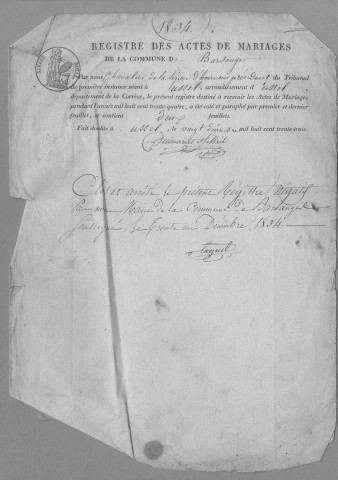 (1834.)
REGISTRE DES ACTES DE MARIAGES
DE LA COMMUNE De Barsanges
Par nous Chevalier de la légion d'honneur président du Tribunal
de première instance séant à ussel, arrondissement d'ussel
département de la Corrèze, le présent registre destiné à recevoir les Actes de Mariages
pendant l'année mil huit cent trente-quatre, a été coté et paraphé par premier et dernier
feuillet, et contient deux feuillets.
Fait double à ussel, le vingt décembre mil huit cent trente-trois.
Clos et arrêté le présent Registre Négatif
par le Maire de la Commune de Barsanges
soussigné, le trente un Décembre 1834.